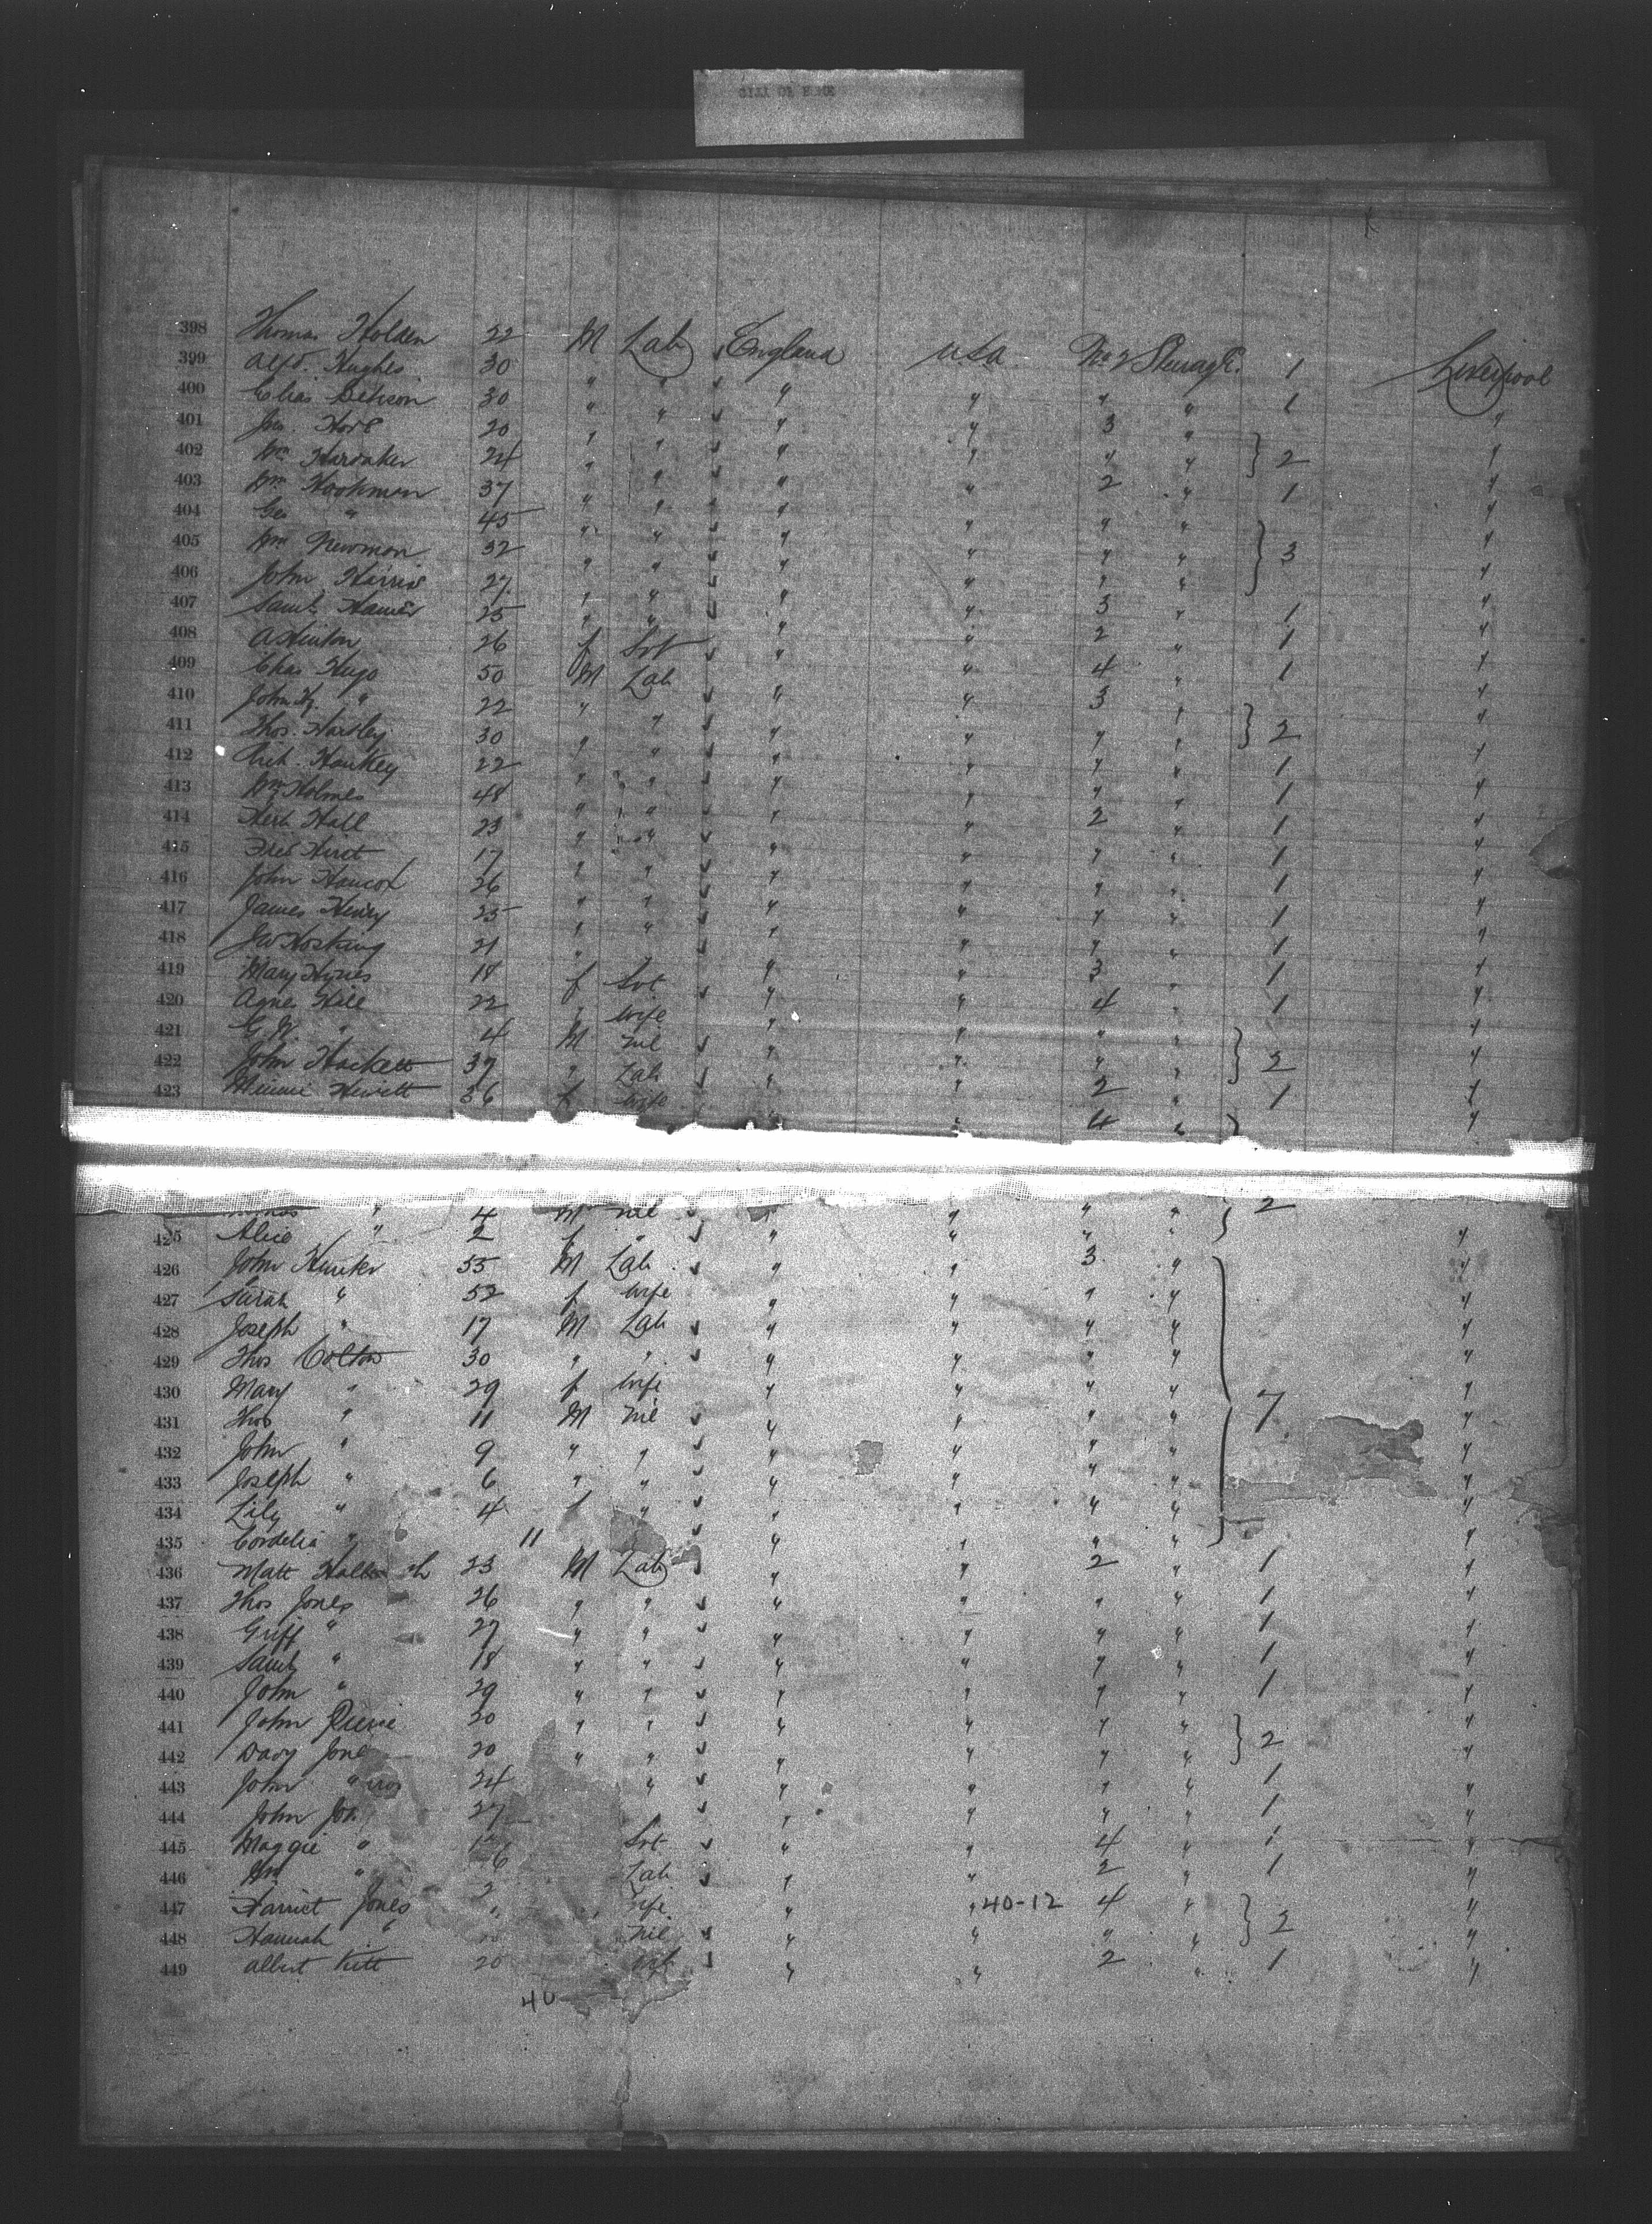 398 Thomas Holden 22 M Lab England U.S.A. No 2 Steerage. 1 Liverpool
399 Alfd. Hughes 30 " " " " " " 1 "
400 Elias 30 " " " " 3 " "
401 Jno. Hore 20 " " " " " " 2 "
402 Wm Hardaker 24 " " " " 2 " 1 "
403 Wm Hookman 37 " " " " " " "
404 Geo " 45 " " " " " " 3 "
405 Wm Newman 32 " " " " " " "
406 John Harris 27 " " " " 3 " 1 "
407 Saml. Hamer 25 " " " " 2 " 1 "
408 A Hinton 26 f Svt " " 4 " 1 "
409 Chas Hugo 50 M Lab " " 3 " "
410 John Hy. " 22 " " " " " " 2 "
411 Thos. Hartley 30 " " " " " " 1 "
412 Rich. Hankey 22 " " " " " " 1 "
413 Wm Holmes 48 " " " " 2 " 1 "
414 Herb Hall 23 " " " " " " 1 "
415 Fred Hirst 17 " " " " " " 1 "
416 John Hancox 26 " " " " " " 1 "
417 James Henry 25 " " " " " " 1 "
418 JW Hosking 21 " " " " 3 " 1 "
419 Mary Hynes 18 f Svt " " 4 " 1 "
420 Agnes Hill 22 " Wife " " " " "
421 G.W. " 4 M Nil " " " " 2 "
422 John Hackett 37 " Lab " " 2 " 1 "
423 Minnie Hewitt 36 f Wife " " 4 " "
" 4 M Nil " " " " 2
425 Alice " 2 f " " " " " "
426 John Hunter 55 M Lab " " 3 " "
427 Sarah " 52 f Wife " " " " "
428 Joseph " 17 M Lab " " " " "
429 Thos Colton 30 " " " " " " "
430 Mary " 29 f Wife " " " " "
431 Thos " 11 M Nil " " " " 7 "
432 John " 9 " " " " " " "
433 Joseph " 6 " " " " " " "
434 Lily " 4 f " " " " " "
435 Cordelia " 11 " " " " "
436 Matt 23 M Lab " " 2 " 1 "
437 Thos Jones 26 " " " " " " 1 "
438 Griff " 27 " " " " " " 1 "
439 Saml " 18 " " " " " " 1 "
440 John " 29 " " " " " " 1 "
441 John 20 " " " " " " 2 "
442 Davy 20 " " " " " " "
443 John " 24 " " " " " 1 "
444 John 27 " " " " 1 "
445 Maggie " Svt " " 4 " 1 "
446 Wm " Lab " " 2 " 1 "
447 Harriet Jones Wife " " 40-12 4 " "
448 Hannah " Nil " " " " 2 "
449 Albert Kitt 20 " " 2 " 1 "
40